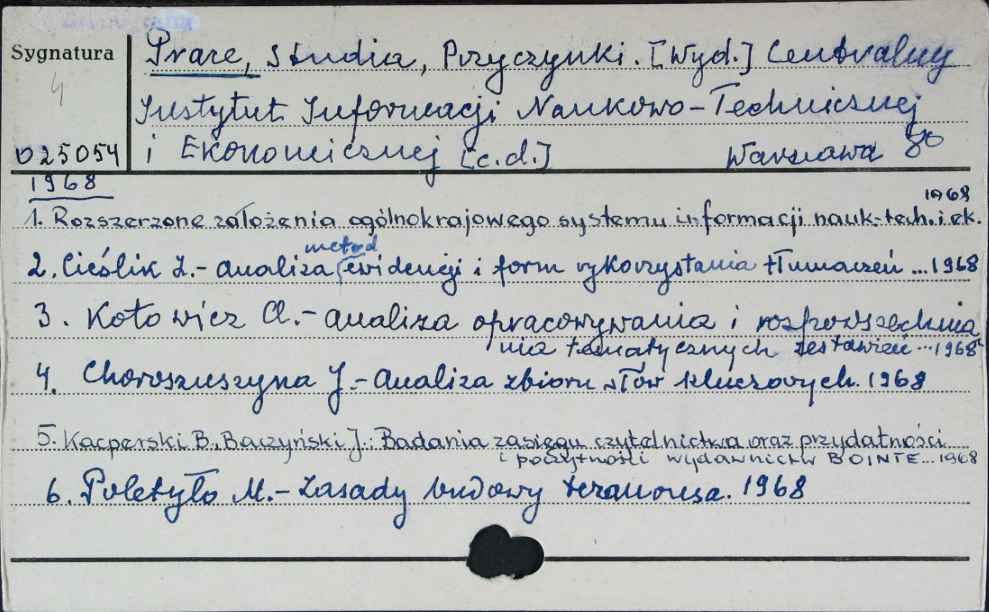 Sygnatura
Prace, Studia, Przyczynki. [Wyd.] Centralny
4
Instytut Informacji Naukowo-Technicznej
025054
i Ekonomicznej [c.d.] Warszawa 80
1968
1. Rozszerzone założenia ogólnokrajowego systemu informacji nauk.-tech. i ek. 1968
2. Cieślik Z. - Analiza metod ewidencji i form wykorzystania tłumaczeń ... 1968
3. Kotowicz A. - Analiza opracowywania i rozpowszechnia
nia tematycznych zestawień ... 1968
4. Choroszuszyna J. - Analiza zbioru słów kluczowych. 1968
5. Kacperski B., Baczyński J.: Badania zasięgu czytelnictwa oraz przydatności
i poczytności wydawnictw BOINTE ... 1968
6. Poletyło M. - Zasady budowy tezaurusa. 1968